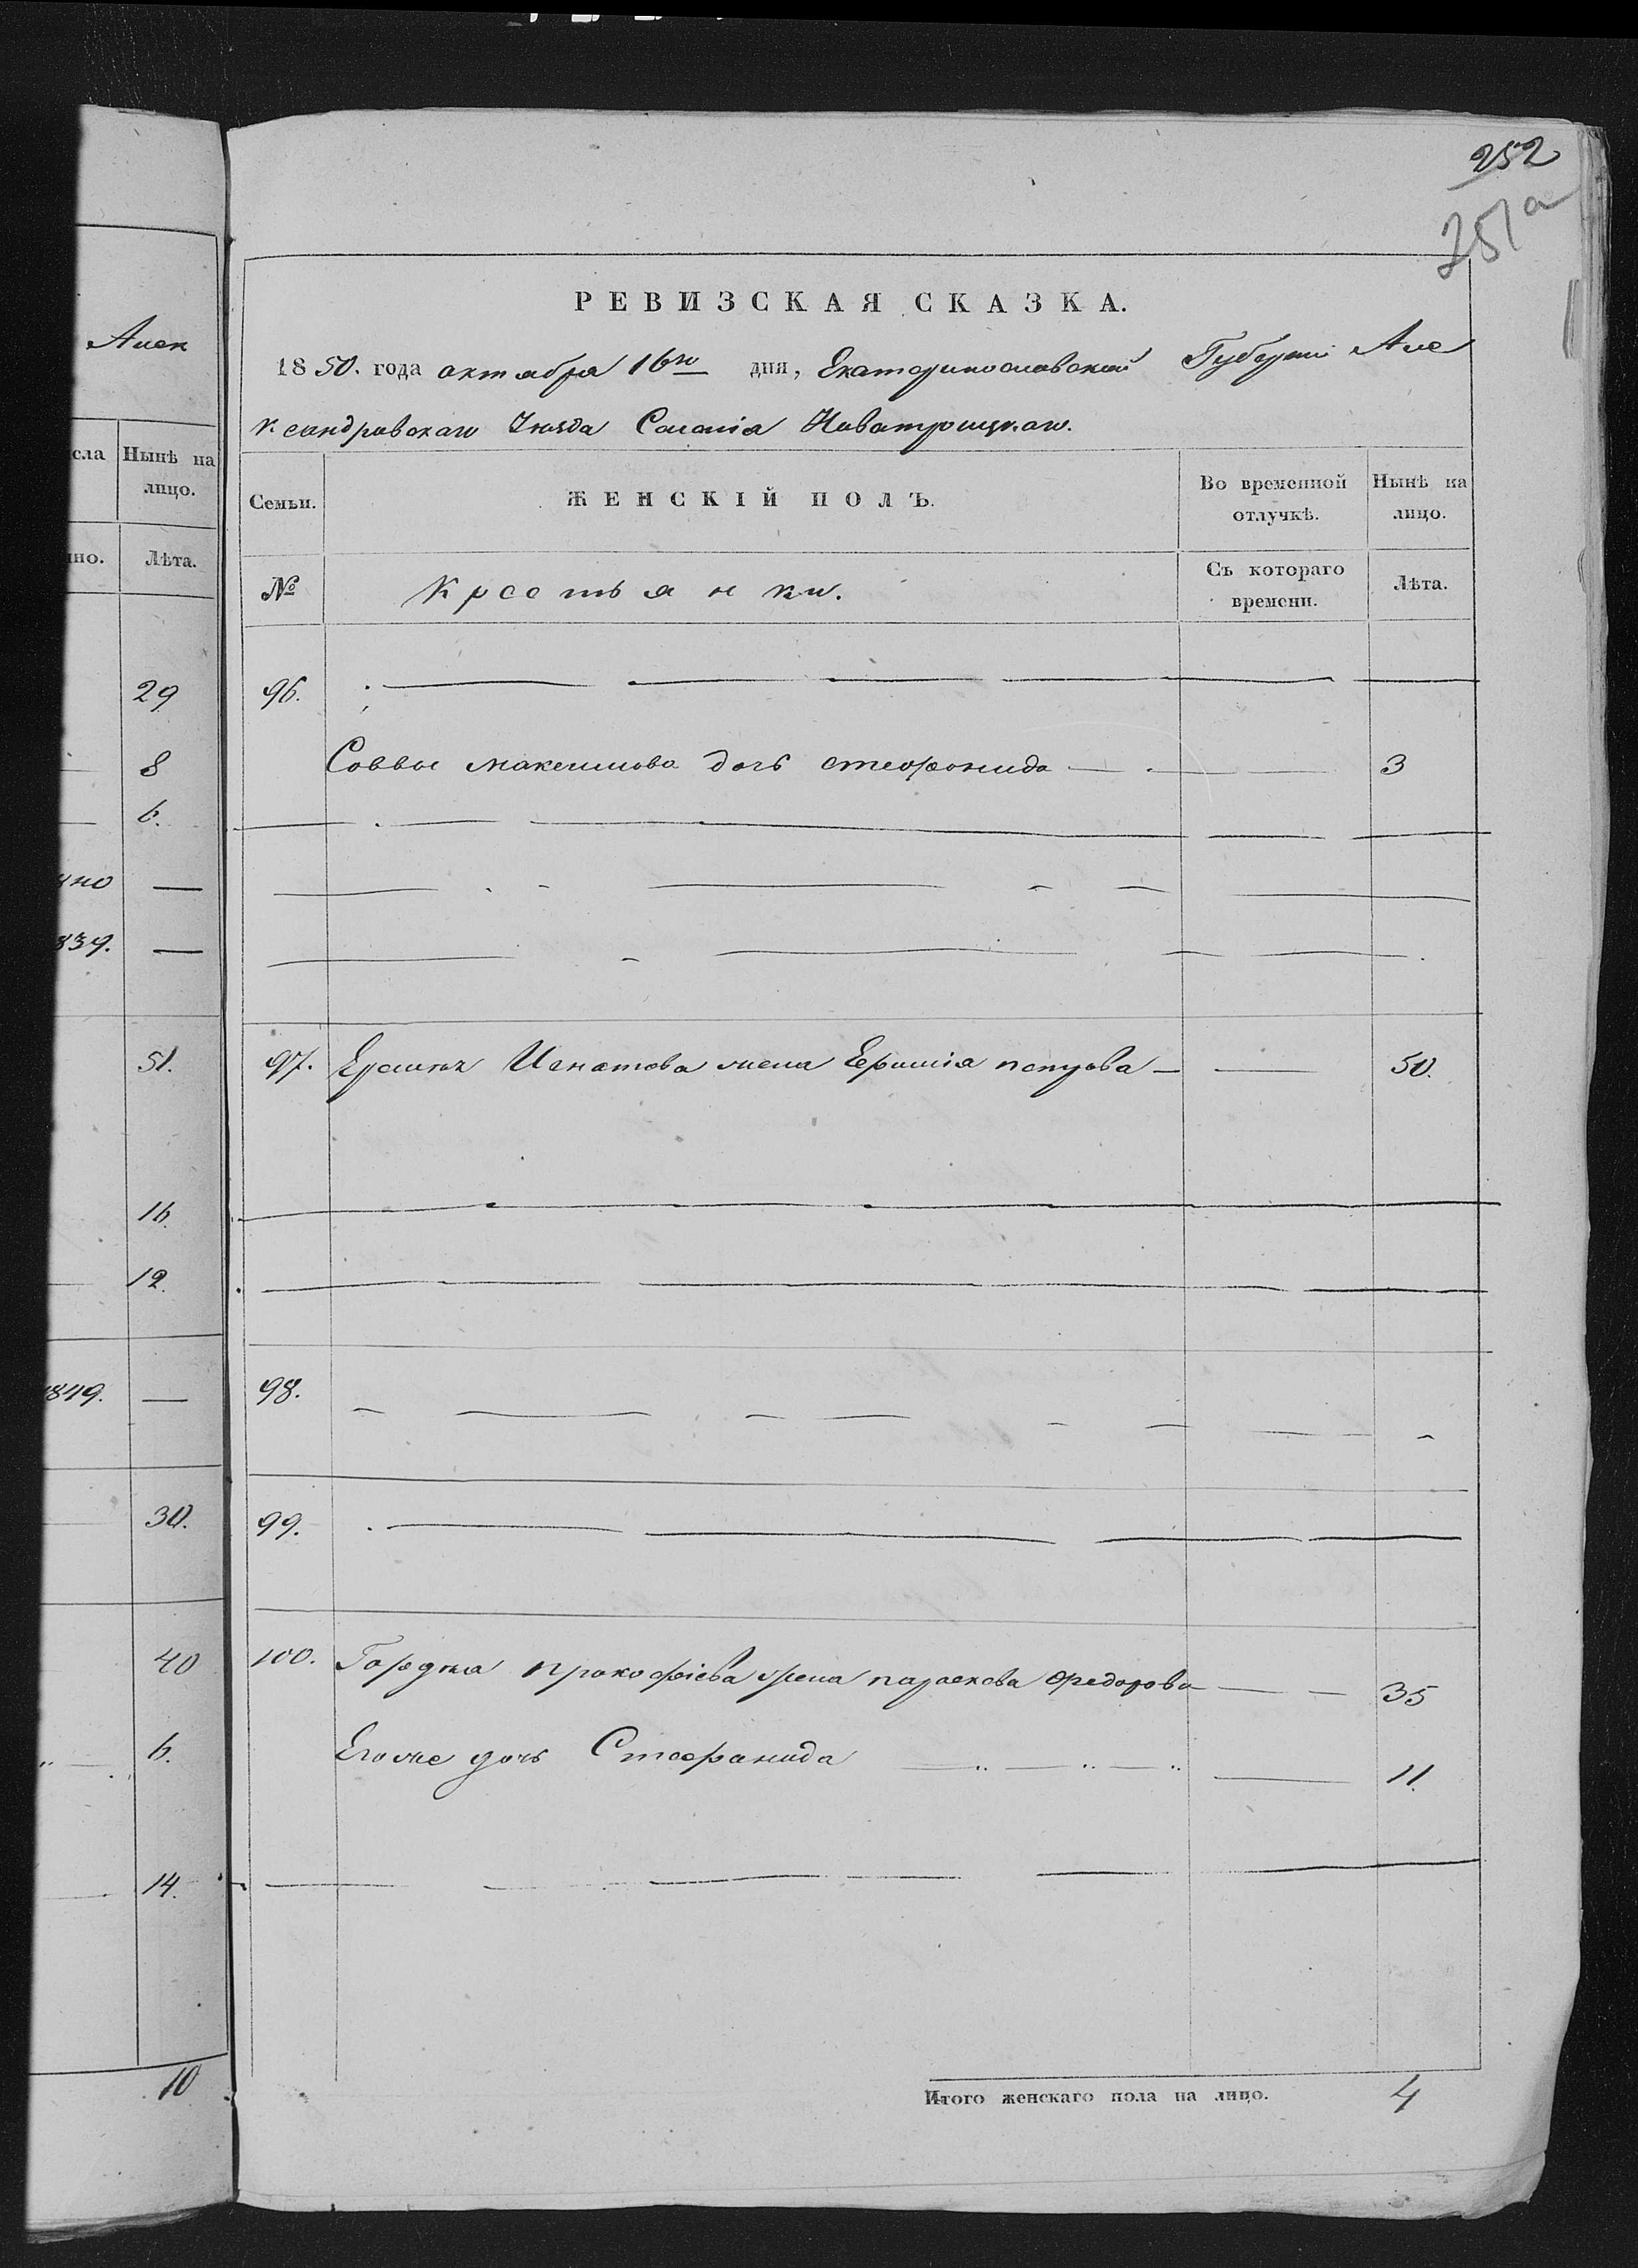 252
251а
Алек
сла
Нынѣ на
лицо.
но.
Лѣта.
29
8
6.
839.
51.
16.
12.
1849.
30.
40
6.
14.
10
РЕВИЗСКАЯ СКАЗКА.
1850. года октября 16го дня, Екатеринославской Губерніи Але
ксандровскаго Уѣзда Селенія Новотроицкаго.
Семьи.
ЖЕНСКІЙ ПОЛЪ.
Во временной
отлучкѣ.
Нынѣ на
лицо.
№
Крестьянки.
Съ котораго
времени.
Лѣта.
96.
Саввы Максимова дочь Стефанида 3
97. Игнатова жена петрова 50.
98.
99.
100. Гордѣя прокофіева жена параскева Федорова 35
Егоже дочь Стефанида 11.
Итого женскаго пола на лицо. 4